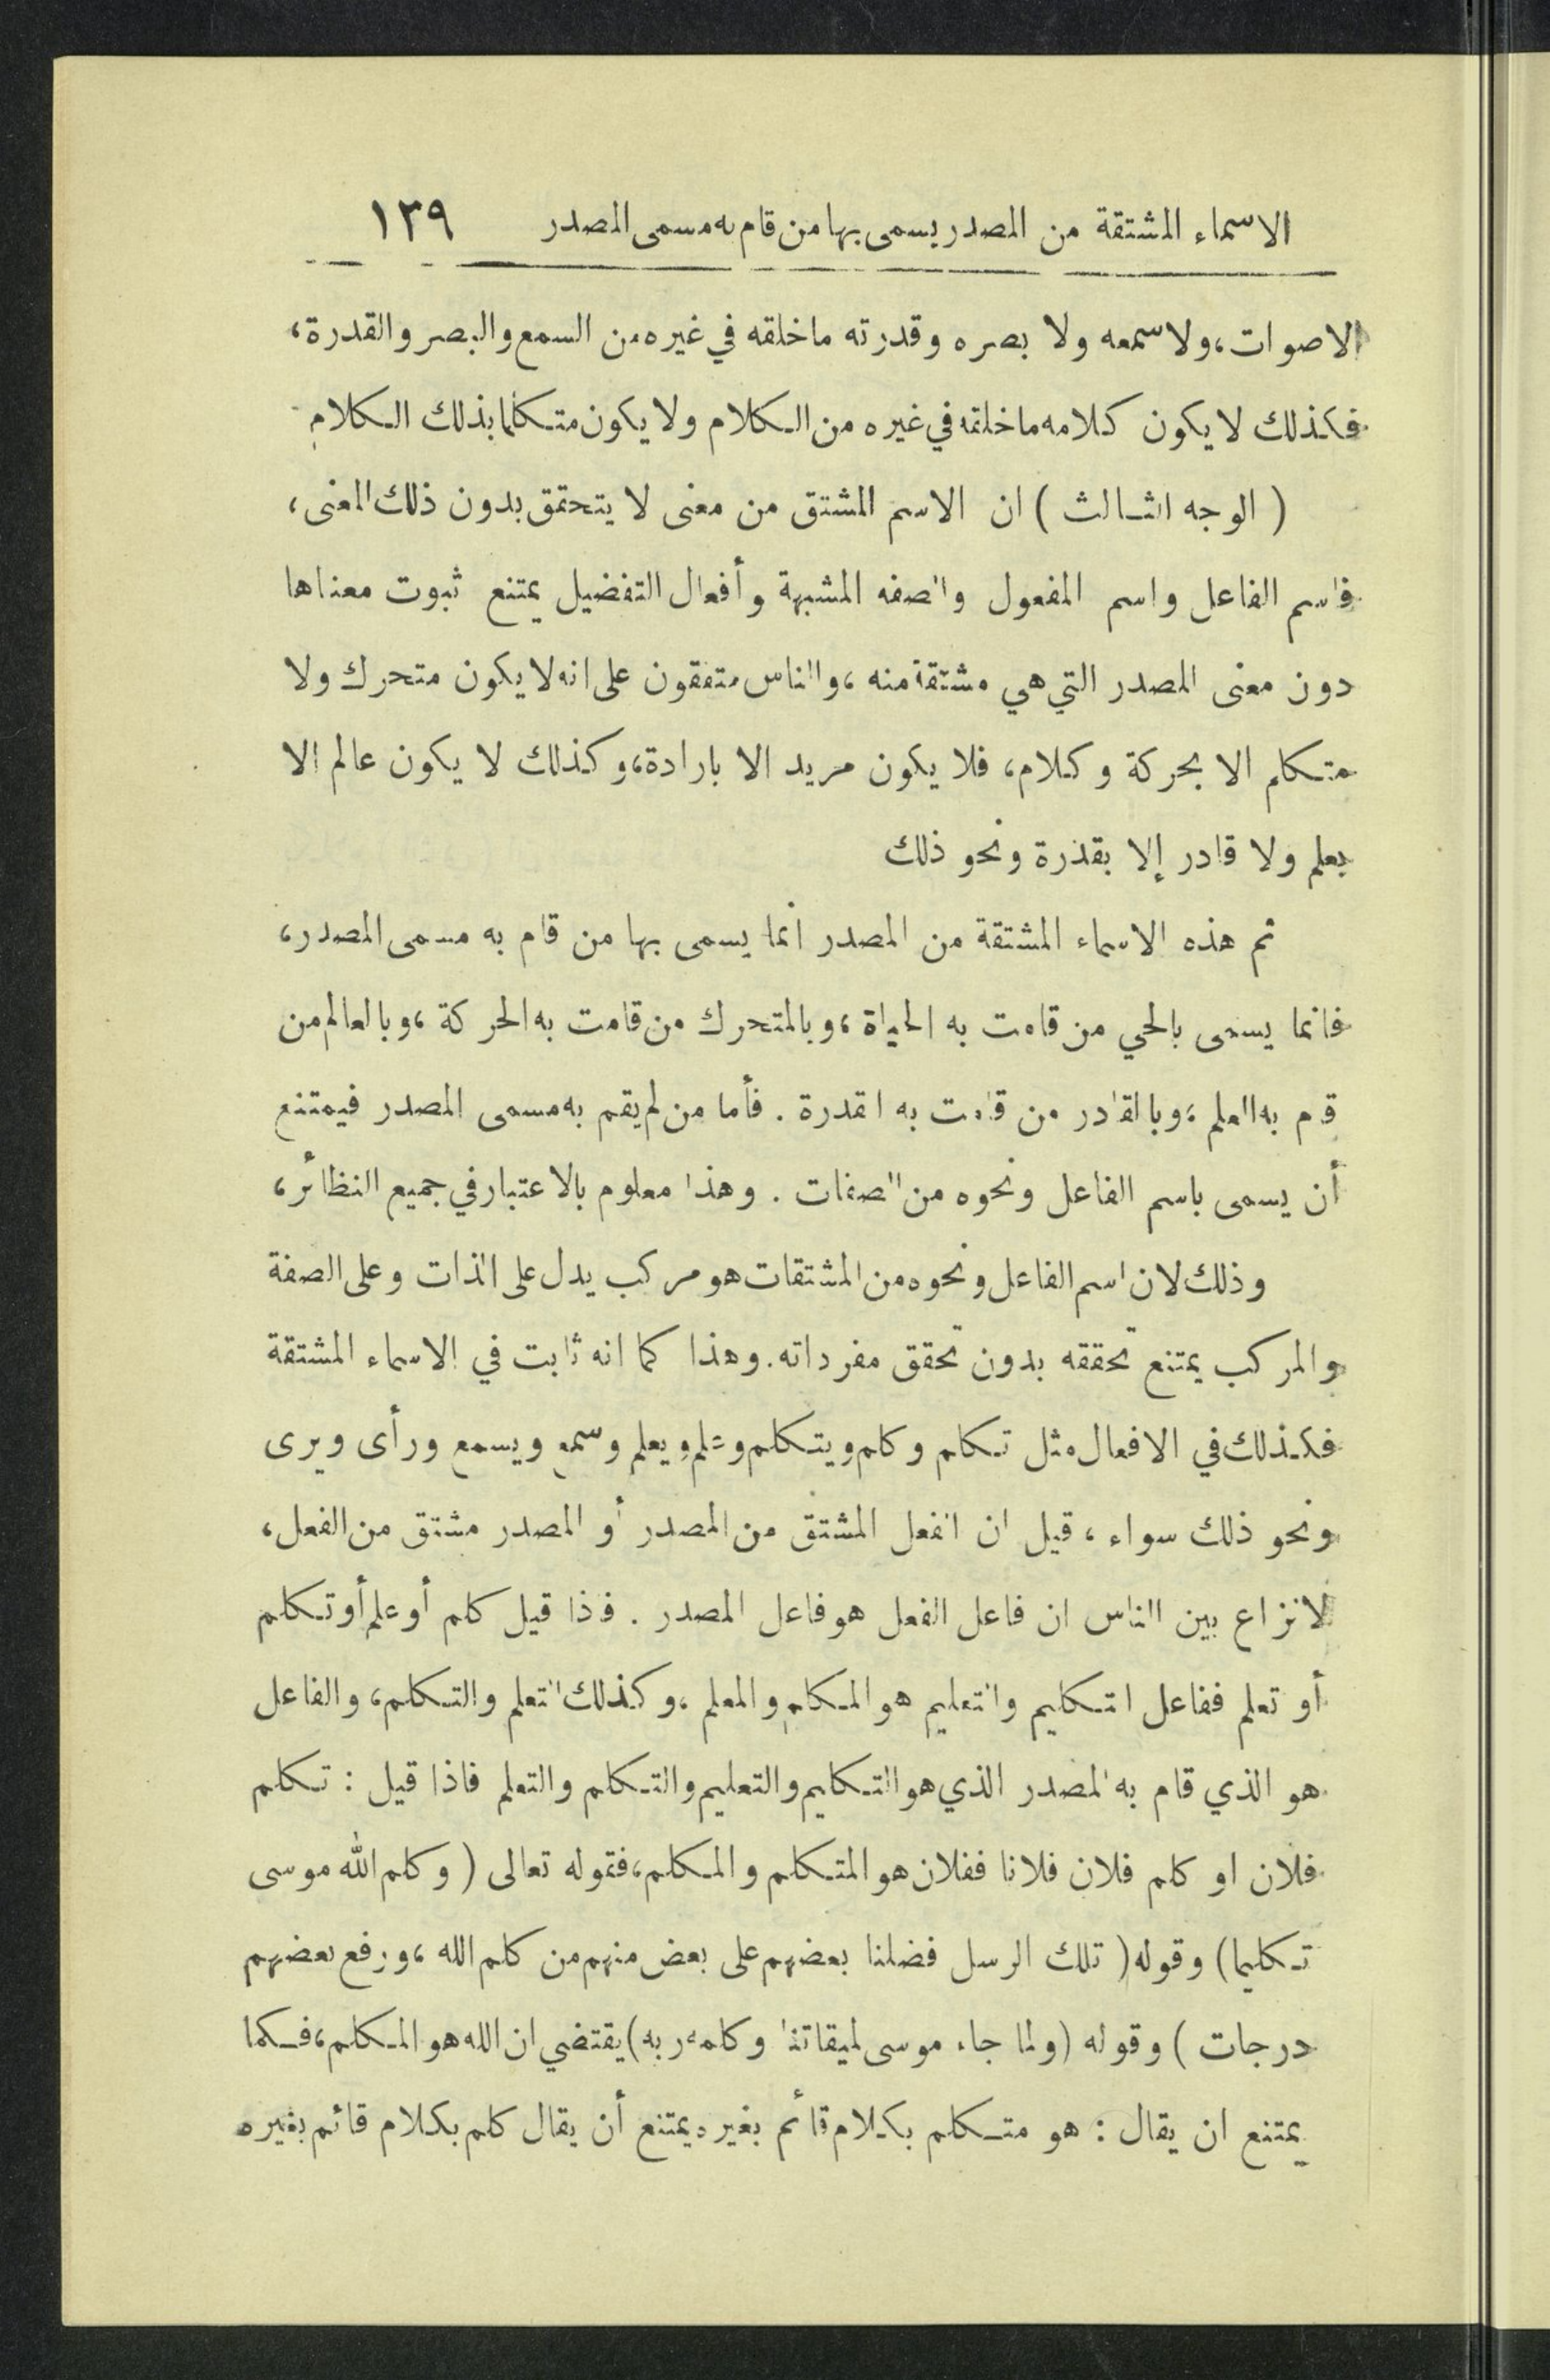 الاسماء المشتقة من المصدر يسمى بها من قام به مسمى المصدر ١٣٩
الاصوات، ولا سمعه ولا بصره وقدرته ما خلقه في غيره من السمع والبصر والقدرة،
فكذلك لا يكون كلامه ما خلقه في غيره من الكلام ولا يكون متكلما بذلك الكلام
( الوجه الثالث ) ان الاسم المشتق من معنى لا يتحقق بدون ذلك المعنى،
فاسم الفاعل واسم المفعول والصفه المشبهة وأفعال التفضيل يمتنع ثبوت معناها
دون معنى المصدر التي هي مشتقة منه، والناس متفقون على انه لا يكون متحرك ولا
متكلم الا بحركة وكلام، فلا يكون مريد الا بارادة، وكذلك لا يكون عالم الا
بعلم ولا قادر إلا بقدرة ونحو ذلك
ثم هذه الاسماء المشتقة من المصدر انما يسمى بها من قام به مسمى المصدر،
فانما يسمى بالحي من قامت به الحياة، وبالمتحرك من قامت به الحركة، وبالعالم من
قام به العلم، وبالقادر من قامت به القدرة . فأما من لم يقم به مسمى المصدر فيمتنع
أن يسمى باسم الفاعل ونحوه من الصفات . وهذا معلوم بالاعتبار في جميع النظائر،
وذلك لان اسم الفاعل ونحوه من المشتقات هو مركب يدل على الذات وعلى الصفة
والمركب يمتنع تحققه بدون تحقق مفرداته. وهذا كما انه ثابت في الاسماء المشتقة
فكذلك في الافعال مثل تكلم وكلم ويتكلم وعلم ويعلم وسمع ويسمع ورأى ويرى
ونحو ذلك سواء، قيل ان الفعل المشتق من المصدر أو المصدر مشتق من الفعل،
لا نزاع بين الناس ان فاعل الفعل هو فاعل المصدر . فاذا قيل كلم أو علم أو تكلم
أو تعلم ففاعل التكليم والتعليم هو المكلم والمعلم، وكذلك التعلم والتكلم، والفاعل
هو الذي قام به المصدر الذي هو التكليم والتعليم والتكلم والتعلم فاذا قيل : تكلم
فلان او كلم فلان فلانا ففلان هو المتكلم والمكلم، فقوله تعالى ( وكلم الله موسى
تكليما) وقوله ( تلك الرسل فضلنا بعضهم على بعض منهم من كلم الله، ورفع بعضهم
درجات ) وقوله (ولما جاء موسى لميقاتنا وكلمه ربه) يقتضي ان الله هو المكلم، فكما
يمتنع ان يقال : هو متكلم بكلام قائم بغيره يمتنع أن يقال كلم بكلام قائم بغيره